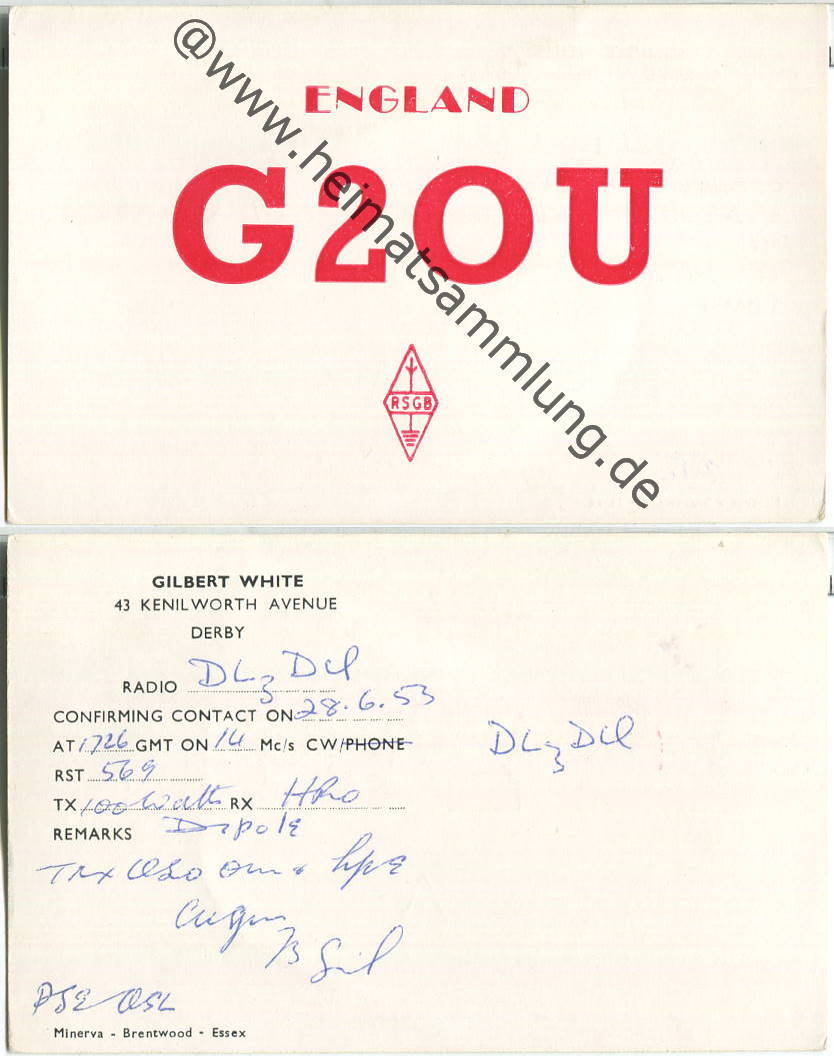 ENGLAND
G2OU
RSGB
@www.heimatsammlung.de
GILBERT WHITE
43 KENILWORTH AVENUE
DERBY
RADIO DL3DU
CONFIRMING CONTACT ON 28.6.53
AT 1726 GMT ON 14 Mc/s CW/PHONE
RST 569
TX 100 Watts RX HRO
REMARKS Dipole
Tnx QSO om & hpe
Cuagn
73 Gil
PSE QSL
Minerva - Brentwood - Essex